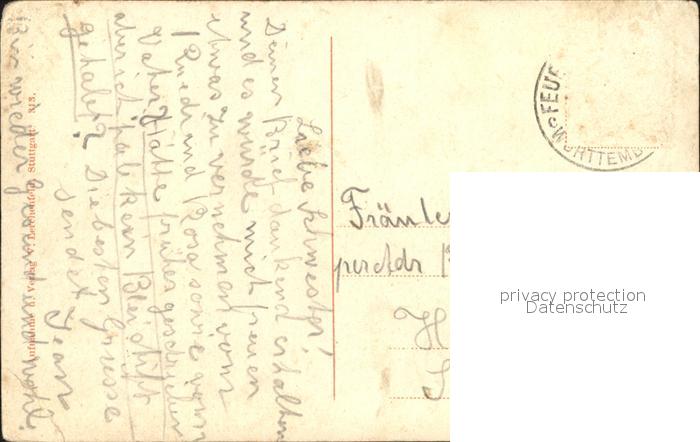 Liebe Schwester!
Deinen Brief dankend erhalten
und es würde mich freuen
etwas zu vernehmen vom
Ruedi und Rosa sowie vom
Vater. Hätte früher geschrieben
aber ich hab kein Bleistift
gehabt? Die besten Grüsse
sendet Jean
Bin wieder gesund und wohl.
Verlag v. Stuttgart 813.
FEU
WÜRTTEMB
Fräule
per adr
H
privacy protection
Datenschutz